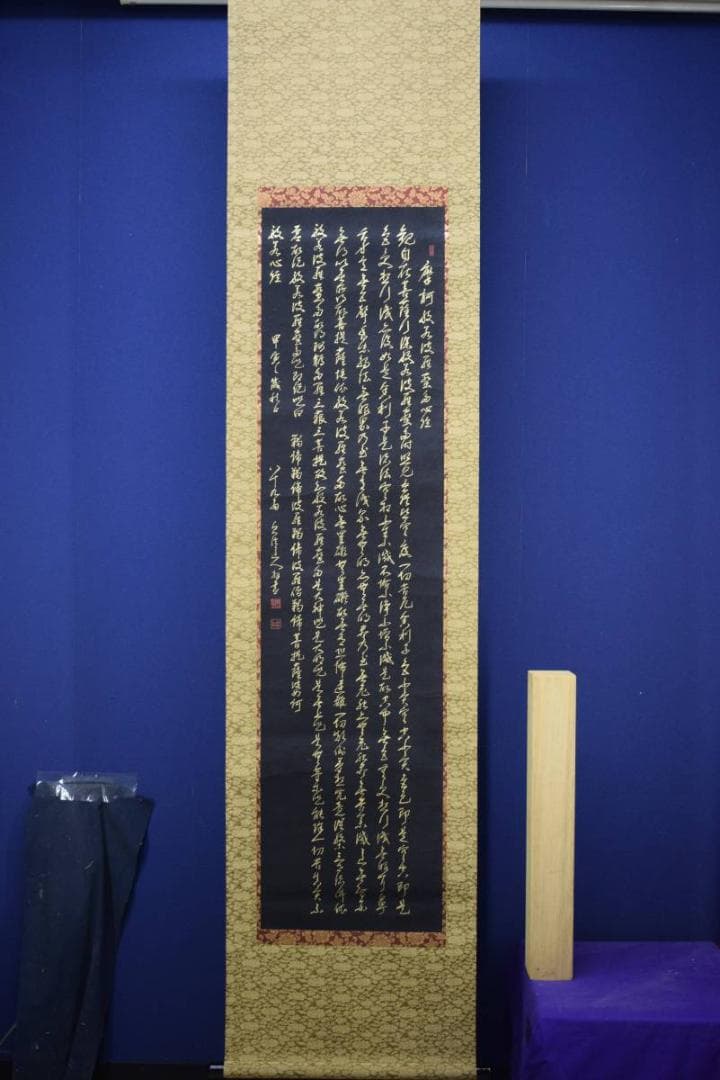 摩訶般若波羅蜜多心経
観自在菩薩行深般若波羅蜜多時照見五蘊皆空度一切苦厄舎利子色不異空空不異色色即是空空即是
色受想行識亦復如是舎利子是諸法空相不生不滅不垢不浄不増不減是故空中無色無受想行識無眼耳鼻
舌身意無色声香味触法無眼界乃至無意識界無無明亦無無明尽乃至無老死亦無老死尽無苦集滅道無智亦
無得以無所得故菩提薩埵依般若波羅蜜多故心無罣礙無罣礙故無有恐怖遠離一切顛倒夢想究竟涅槃三世諸仏依
般若波羅蜜多故得阿耨多羅三藐三菩提故知般若波羅蜜多是大神呪是大明呪是無上呪是無等等呪能除一切苦真実不
虚故説般若波羅蜜多呪即説呪曰 羯諦羯諦波羅羯諦波羅僧羯諦菩提薩婆訶
般若心経 甲寅歳